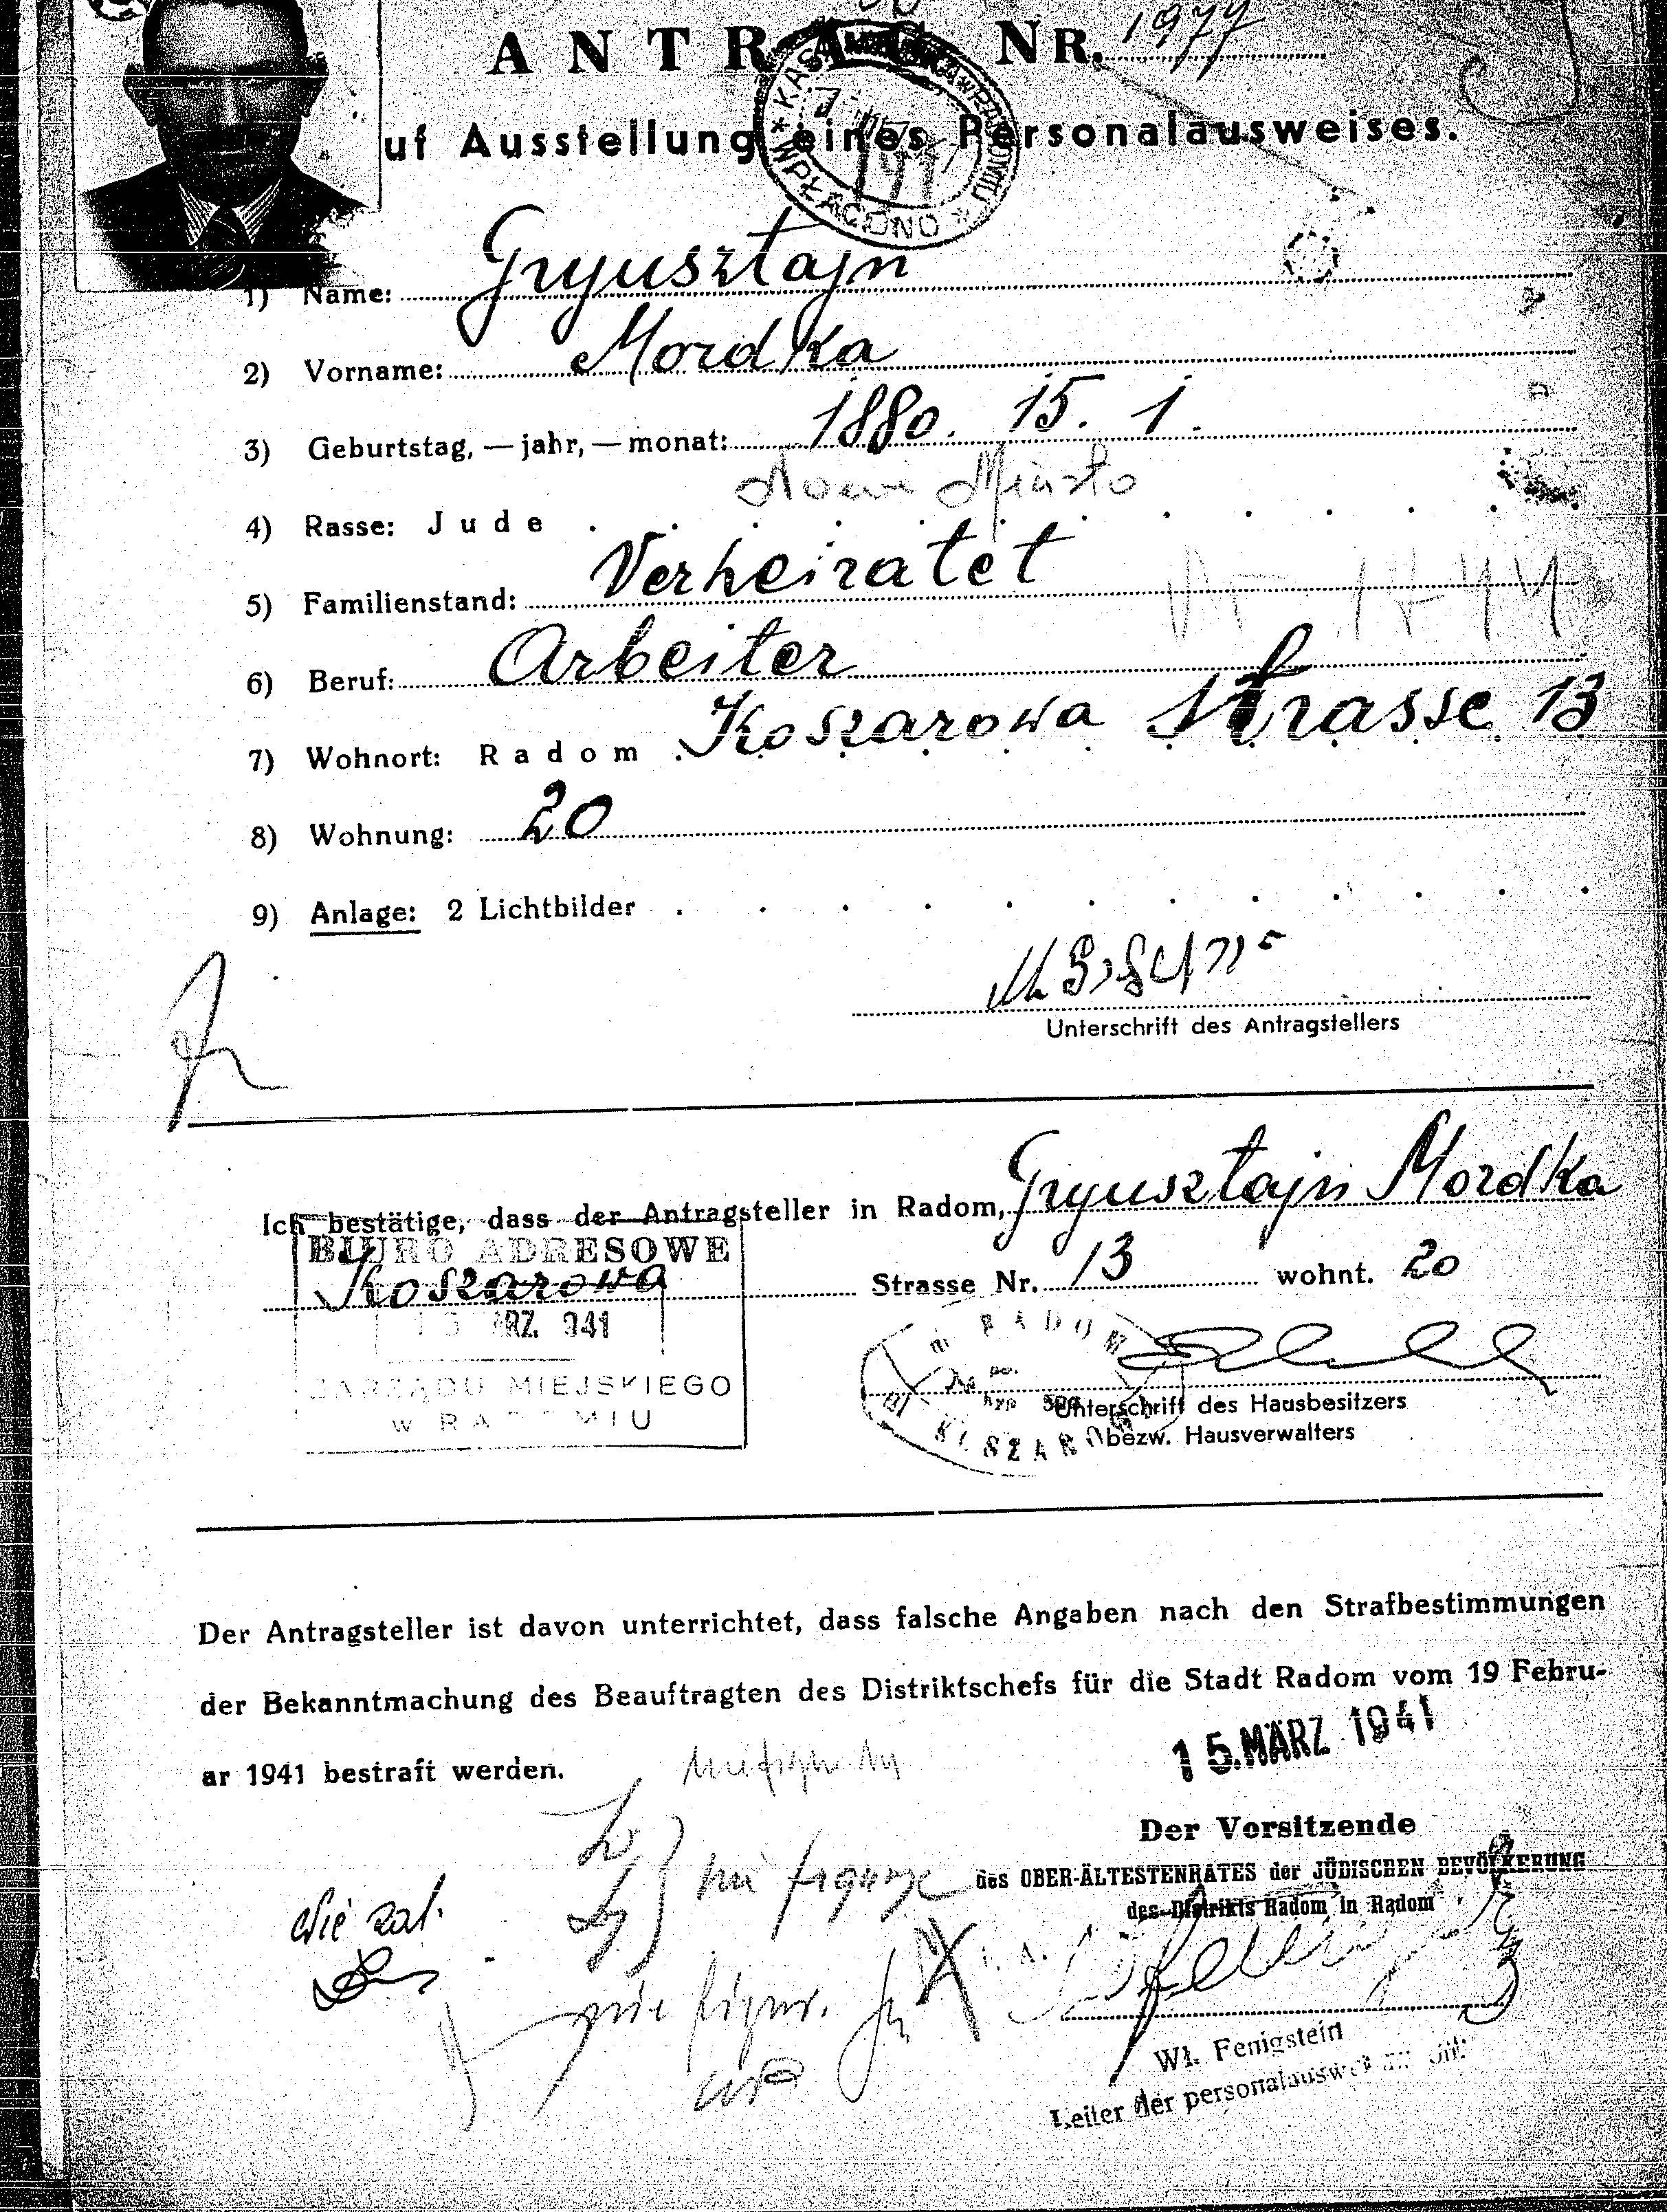 ANTRAG NR. 1977
uf Ausstellung eines Personalausweises.
KASA MIEJSKA w RADOMIU
WPŁACONO
1) Name: Gryusztajn
2) Vorname: Mordka
3) Geburtstag, — jahr, — monat: 1880. 15. 1.
Nowe Miasto
4) Rasse: Jude
5) Familienstand: Verheiratet
6) Beruf: Arbeiter
7) Wohnort: Radom Koszarowa Strasse 13
8) Wohnung: 20
9) Anlage: 2 Lichtbilder
Unterschrift des Antragstellers
Ich bestätige, dass der Antragsteller in Radom, Gryusztajn Mordka
BIURO ADRESOWE
Koszarowa Strasse Nr. 13 wohnt. 20
15 MRZ. 941
ZARZĄDU MIEJSKIEGO
w RADOMIU
RADOM
Unterschrift des Hausbesitzers
bezw. Hausverwalters
Der Antragsteller ist davon unterrichtet, dass falsche Angaben nach den Strafbestimmungen
der Bekanntmachung des Beauftragten des Distriktschefs für die Stadt Radom vom 19 Febru-
ar 1941 bestraft werden.
15. MÄRZ 1941
Der Vorsitzende
des OBER-ÄLTESTENRATES der JÜDISCHEN BEVÖLKERUNG
des Distrikts Radom in Radom
Nie zal.
I. A.
nie figur.
Wł. Fenigstein
Leiter der personalausweis